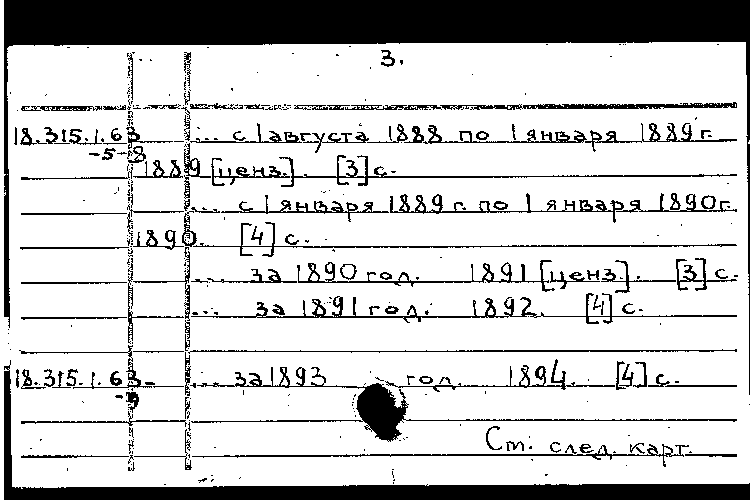 3.
18.315.1.63 ... с 1 августа 1888 по 1 января 1889 г.
-5-8 1889 [ценз.]. [3] с.
... с 1 января 1889 г. по 1 января 1890 г.
1890. [4] с.
... за 1890 год. 1891 [ценз.]. [3] с.
... за 1891 год. 1892. [4] с.
18.315.1.63- ... за 1893 год. 1894. [4] с.
-9
См. след. карт.